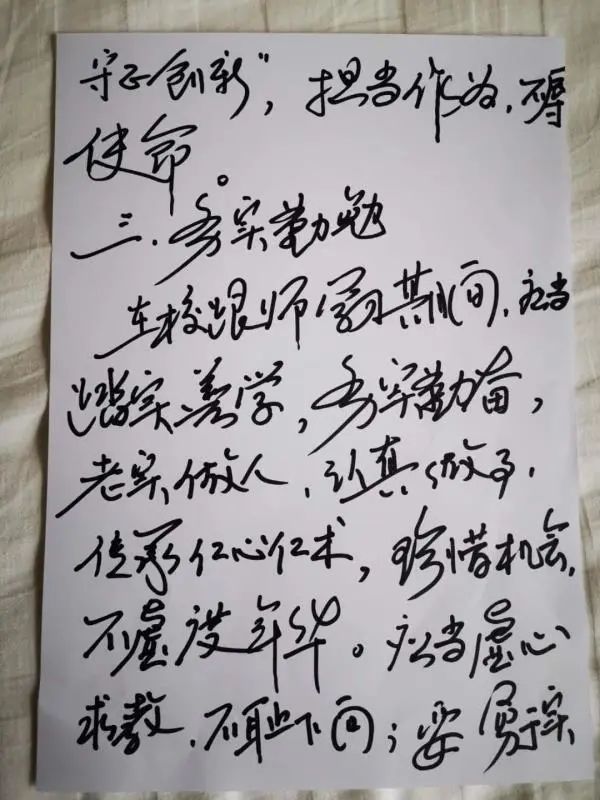 守正创新”，担当作为，不辱
使命。
三．务实勤勉
在校跟师学习其间，应当
踏实善学，务实勤奋，
老实做人，认真做事，
传承仁心仁术，珍惜机会，
不虚度年华。应当虚心
求教，不耻下问；要勇于实